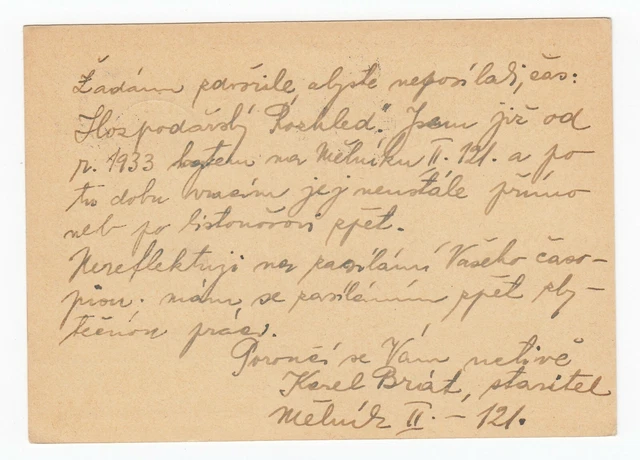 Žádám zdvořile, abyste neposílali, čas:
"Hospodářský Rozhled". Jsem již od
r. 1933 bytem na Mělníku II. 121. a po
tu dobu vracím jej neustále přímo
neb po listonošovi zpět.
Nereflektuji na zasílání Vašeho časo-
pisu. mám se zasíláním zpět zby-
tečnou práci.
Poroučí se Vám uctivě
Karel Brát, stavitel
Mělník II. - 121.